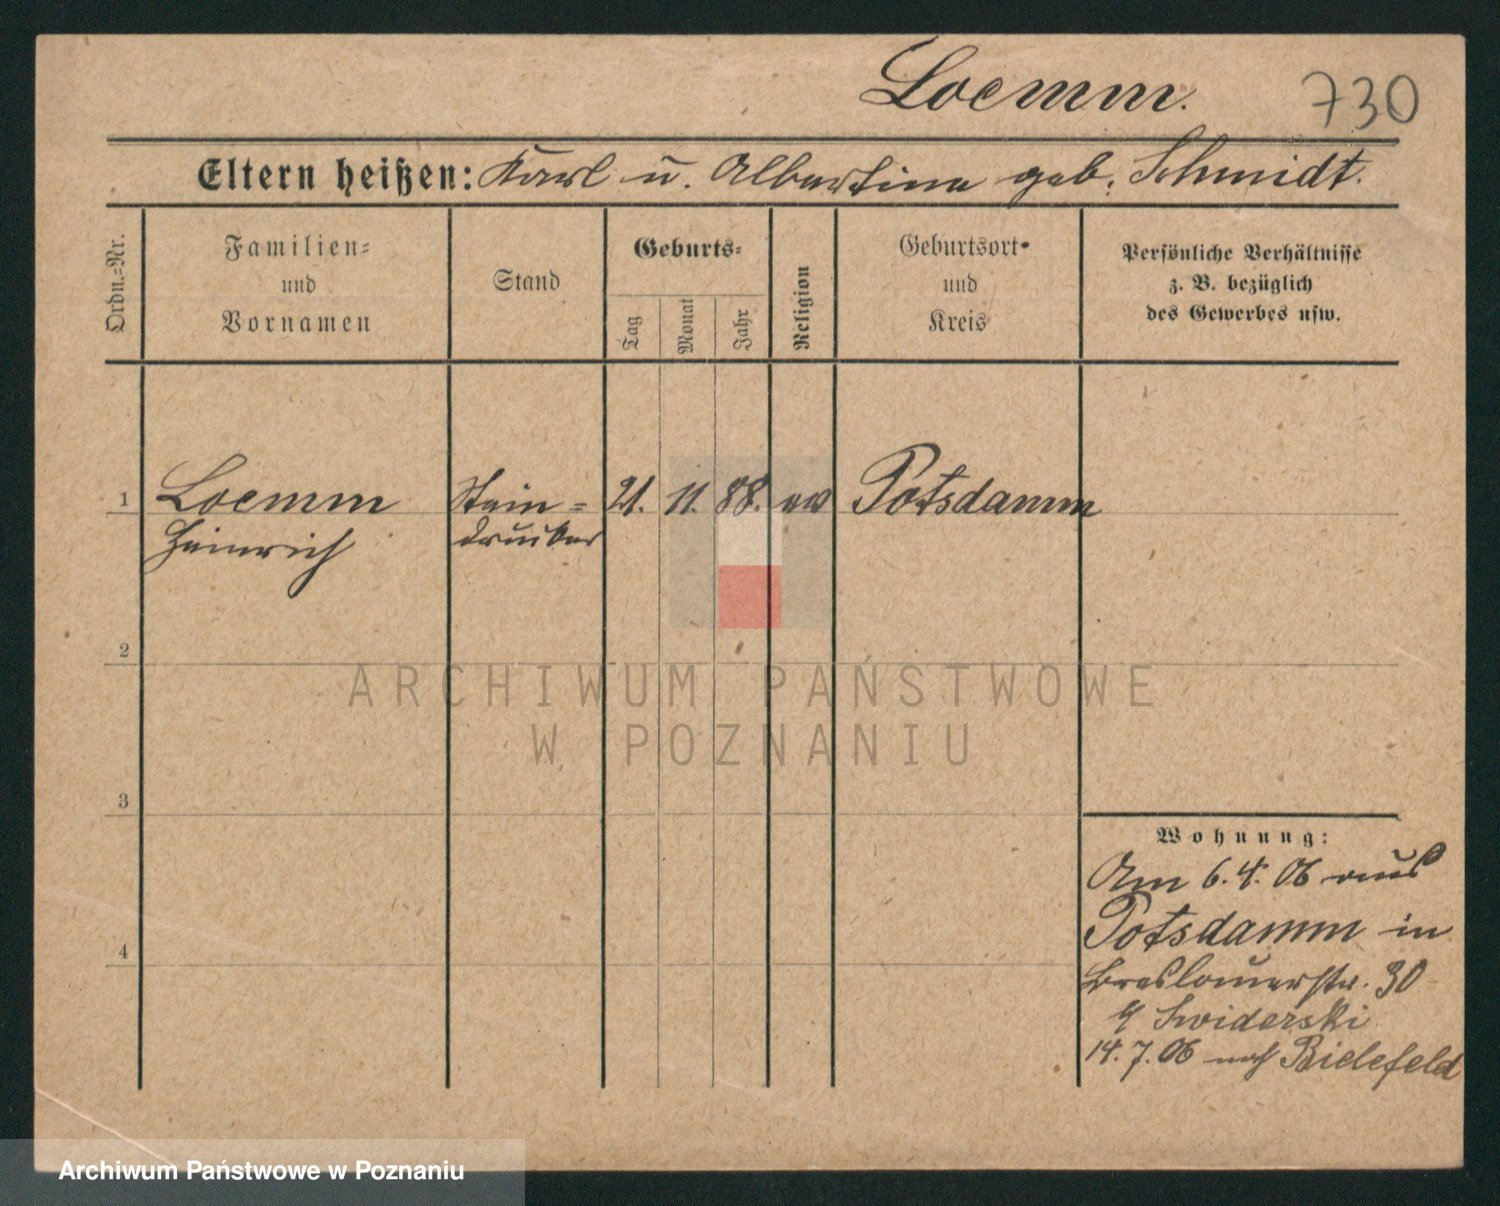 Loemm. 730
Eltern heißen: Karl u. Albertine geb. Schmidt.
Ordn.=Nr.
Familien=
und
Vornamen
Stand
Geburts=
Tag
Monat
Jahr
Religion
Geburtsort=
und
Kreis
Persönliche Verhältnisse
z. B. bezüglich
des Gewerbes usw.
1 Loemm Stein= 21. 11. 88. ev Potsdamm
Heinrich drucker
2
ARCHIWUM PAŃSTWOWE
W POZNANIU
3
Wohnung:
Am 6.4.06 aus
4 Potsdamm in
Breslauerstr. 30
Swiderski
14.7.06 nach Bielefeld
Archiwum Państwowe w Poznaniu